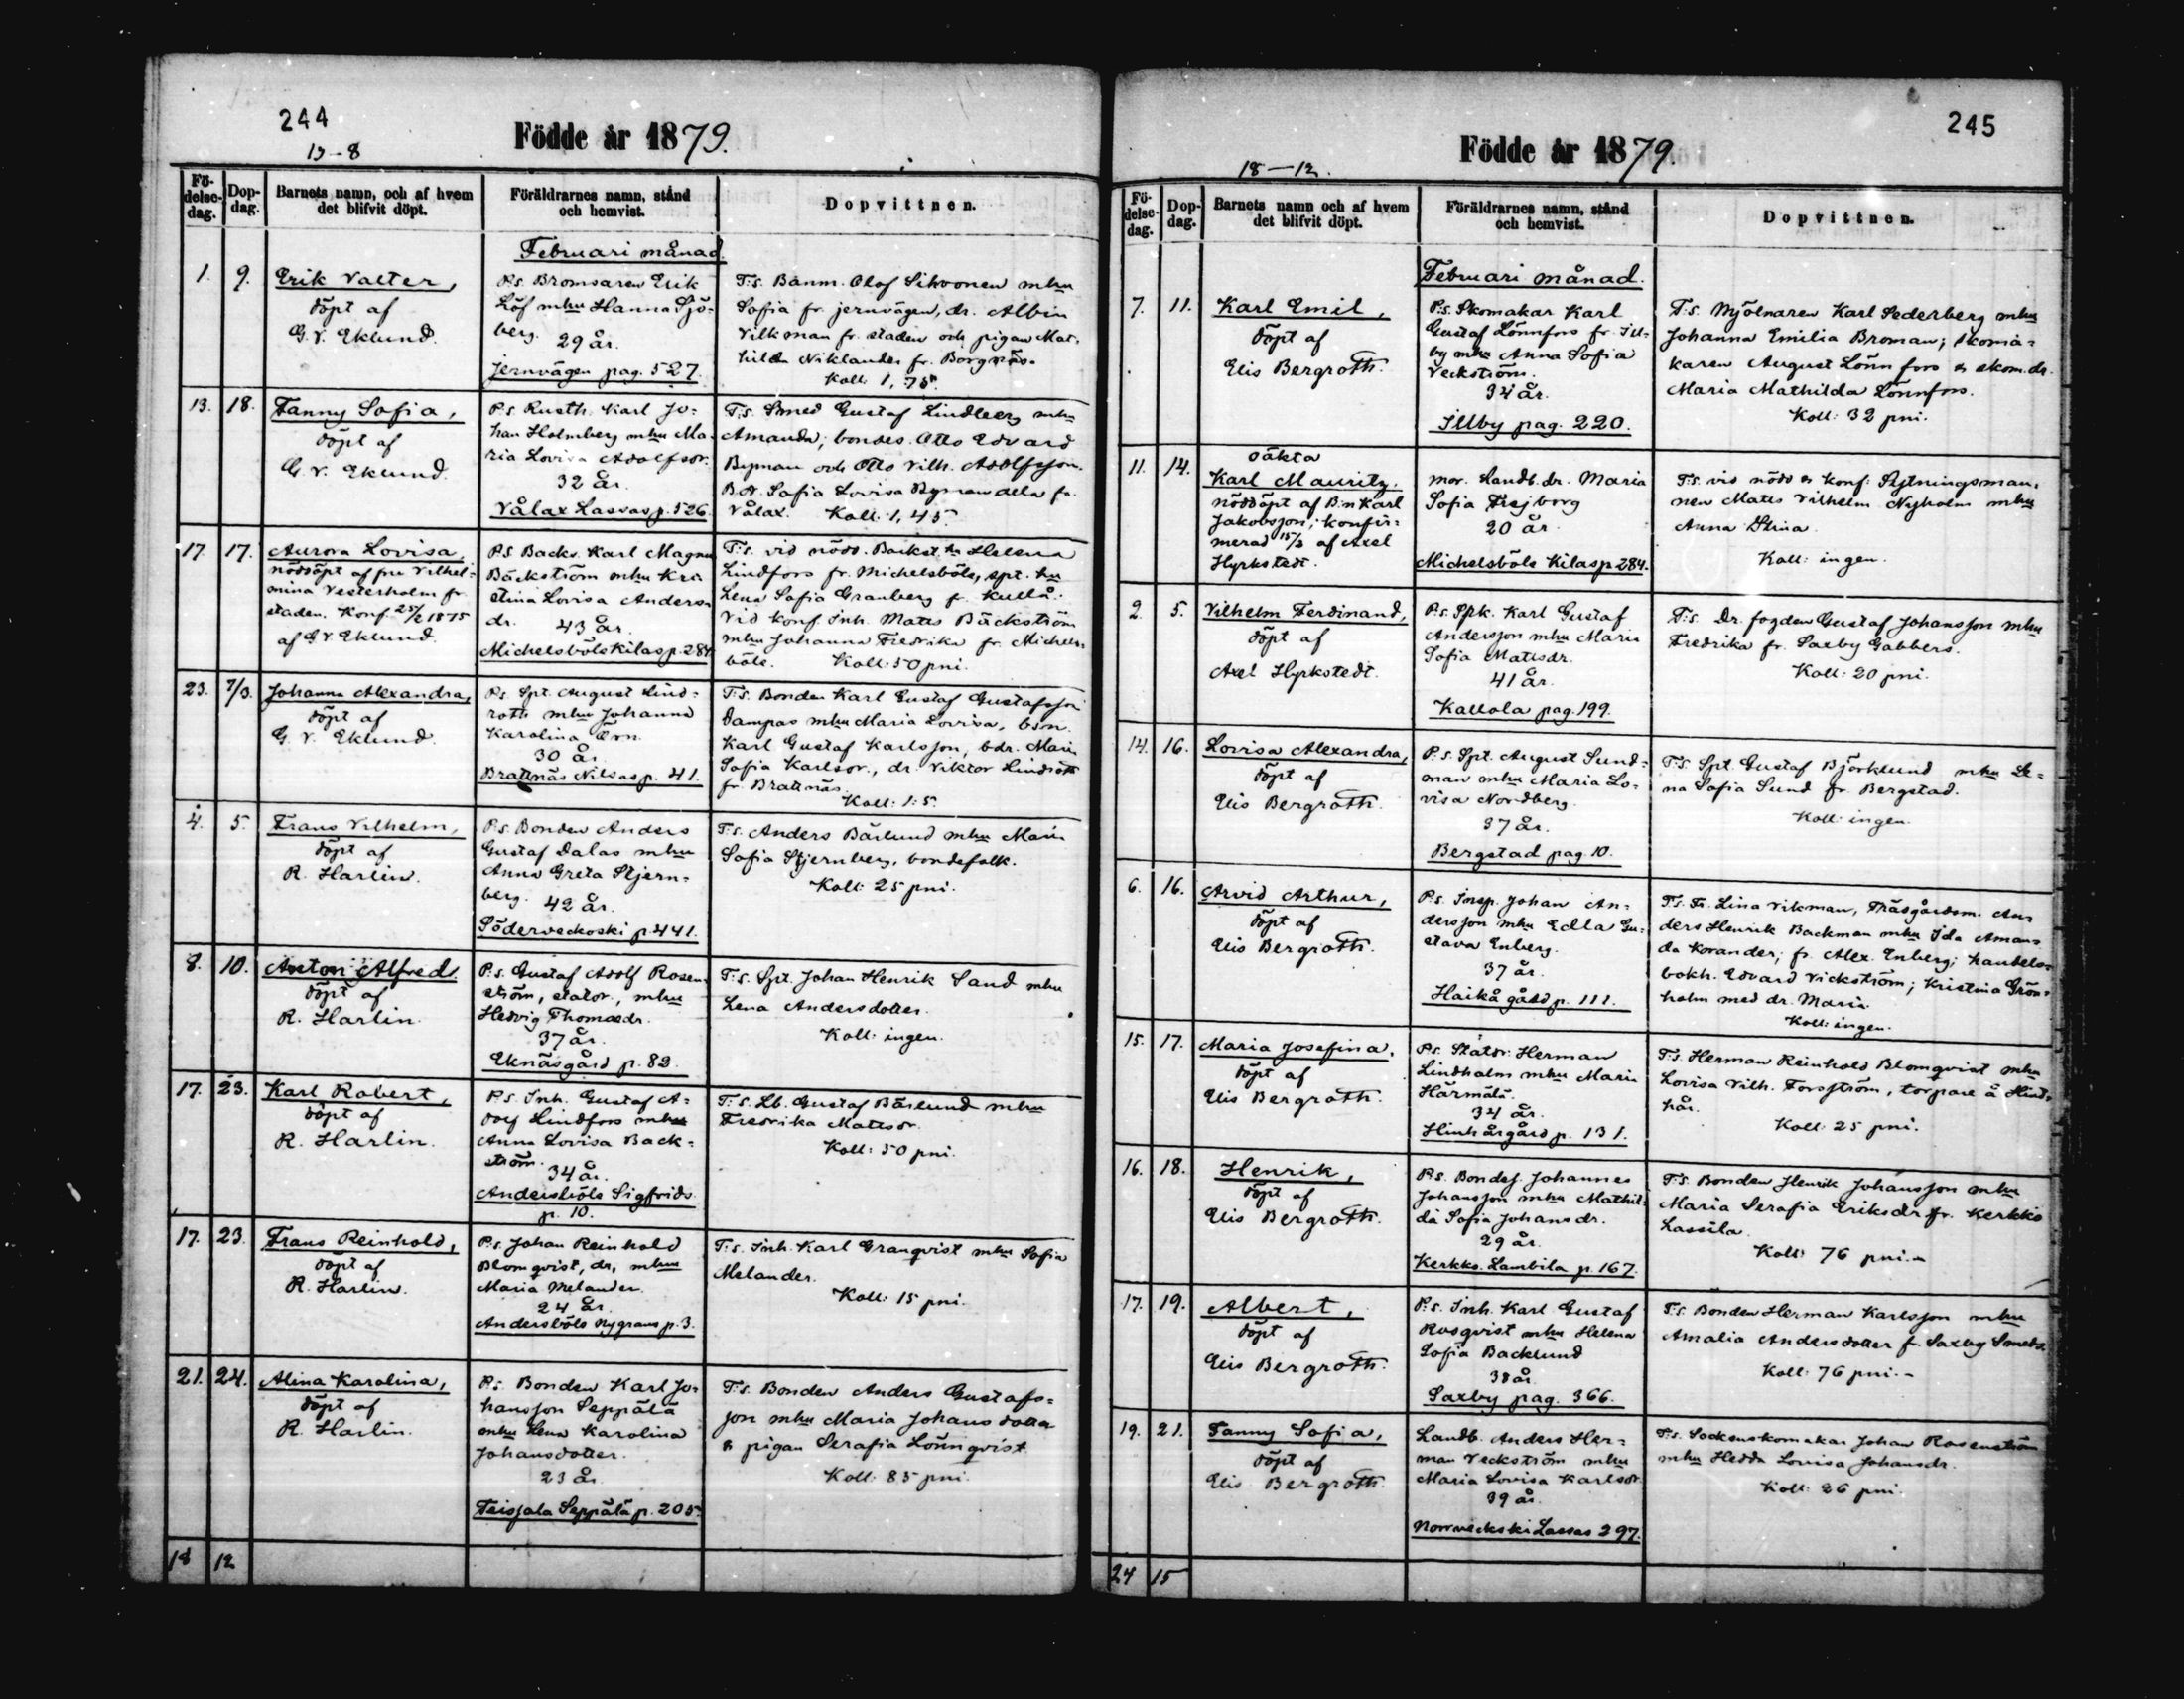 244
Födde år 1879.
13-8
Fö-
delse-
dag.
Dop-
dag.
Barnets namn, och af hvem
det blifvit döpt.
Föräldrarnes namn, stånd
och hemvist.
Dopvittnen.
Februari månad.
1. 9.
Erik Valter,
döpt af
G. V. Eklund.
P.s. Bromsaren Erik
Löf mhu Hanna Sjö-
berg.
29 år.
Jernvägen pag. 527.
T:s. Banm. Olof Sihvonen mhu
Sofia fr. jernvägen, dr. Albin
Vilkman fr. staden och pigan Mat-
hilda Niklander fr. Borgnäs.
Koll: 1,75.
13. 18.
Fanny Sofia,
döpt af
G. V. Eklund.
P.s. Rusth. Karl Jo-
han Holmberg mhu Ma-
ria Lovisa Adolfsdr.
32 år.
Vålax Lassas p. 526.
T:s. Smed Gustaf Lindberg mhu
Amanda; bondes. Otto Edvard
Byman och Otto Vilh. Adolfsson.
B.dr. Sofia Lovisa Bymandela fr.
Vålax. Koll: 1,45.
17. 17.
Aurora Lovisa,
nöddöpt af fru Vilhel-
mina Vesterholm fr.
staden. Konf. 25/2 1875
af G V. Eklund.
P.s. Backs. Karl Magnus
Bäckström mhu Kri-
stina Lovisa Anders-
dr. 43 år.
Michelsböle Kilas p. 284
T:s. vid nödd. Backst. hu Helena
Lindfors fr. Michelsböle, spt. hu
Lena Sofia Granberg fr. Kullå.
Vid konf. Inh. Matts Bäckström
mhu Johanna Fredrika fr. Michels-
böle. Koll: 50 pni.
23. 7/3.
Johanna Alexandra,
döpt af
G. V. Eklund.
P.s. Spt. August Lind-
roth mhu Johanna
Karolina Örn.
30 år.
Brattnäs Nilsas p. 41.
T:s. Bonden Karl Gustaf Gustafsson
Dampas mhu Maria Lovisa, bsn.
Karl Gustaf Karlsson, bdr. Maria
Sofia Karlsdr., dr. Viktor Lindroth
fr. Brattnäs.
Koll: 1:5.
4. 5.
Frans Vilhelm,
döpt af
R. Harlin.
P.s. Bonden Anders
Gustaf Dalas mhu
Anna Greta Stjern-
berg. 42 år.
Söderveckoski p. 441.
T:s. Anders Bärlund mhu Maria
Sofia Stjernberg, bondefolk.
Koll: 25 pni.
8. 10.
Anton Alfred.
döpt af
R. Harlin.
P.s. Gustaf Adolf Rosen-
ström, statdr., mhu
Hedvig Thomasdr.
37 år.
Eknäsgård p. 82.
T:s. Spt. Johan Henrik Sand mhu
Lena Andersdotter.
Koll: ingen.
17. 23.
Karl Robert,
döpt af
R. Harlin.
P.s. Inh. Gustaf A-
dolf Lindfors mhu
Anna Lovisa Back-
ström.
34 år.
Andersböle Sigfrids
p. 10.
T:s. Lb. Gustaf Bärlund mhu
Fredrika Mattsdr.
Koll: 50 pni.
17. 23.
Frans Reinhold,
döpt af
R. Harlin.
P.s. Johan Reinhold
Blomqvist, dr, mhu
Maria Melander.
24 år.
Andersböle Nygrans p. 3.
T:s. Inh. Karl Granqvist mhu Sofia
Melander.
Koll: 15 pni.
21. 24.
Alina Karolina,
döpt af
R. Harlin.
P.s. Bonden Karl Jo-
hansson Seppälä
mhu Lena Karolina
Johansdotter.
23 år.
Teisjala Seppälä p. 205.
T:s. Bonden Anders Gustafs-
son mhu Maria Johansdotter
& pigan Serafia Lönnqvist.
Koll: 85 pni.
18 12
245
Födde år 1879.
18-12.
Fö-
delse-
dag.
Dop-
dag.
Barnets namn och af hvem
det blifvit döpt.
Föräldrarnes namn, stånd
och hemvist.
Dopvittnen.
Februari månad.
7. 11.
Karl Emil,
döpt af
Elis Bergroth.
P:s. Skomakar Karl
Gustaf Lönnfors fr. Ill-
by mhu Anna Sofia
Veckström.
34 år.
Illby pag. 220.
T:s. Mjölnaren Karl Sederberg mhu
Johanna Emilia Broman; skoma-
karen August Lönnfors & skom.dr.
Maria Mathilda Lönnfors.
Koll: 32 pni.
11. 14.
oäkta
Karl Mauritz.
nöddöpt af B:n Karl
Jakobsson; konfir-
merad 15/2 af Axel
Hyrkstedt.
mor. Landb.dr. Maria
Sofia Frejborg
20 år.
Michelsböle Kilas p 284.
T:s. vid nödd & konf: Flytningsman-
nen Matts Vilhelm Nyholm mhu
Anna Stina.
Koll: ingen.
2. 5.
Vilhelm Ferdinand,
döpt af
Axel Hyrkstedt.
P.s. Spk. Karl Gustaf
Andersson mhu Maria
Sofia Mattsdr.
41 år.
Kallola pag. 199.
T:s. Dr. fogden Gustaf Johansson mhu
Fredrika fr. Saxby Gabbers.
Koll: 20 pni.
14. 16.
Lovisa Alexandra,
döpt af
Elis Bergroth.
P.s. Spt. August Sund-
man mhu Maria Lo-
visa Nordberg.
37 år.
Bergstad pag. 10.
T:s. Spt. Gustaf Björklund mhu Le-
na Sofia Sund fr. Bergstad.
Koll: ingen.
6. 16.
Arvid Arthur,
döpt af
Elis Bergroth.
P.s. Insp. Johan An-
dersson mhu Edla Gu-
stava Enberg.
37 år.
Haikå gård p. 111.
T:s. Fr. Lina Vikman, Trädgårdsm. An-
ders Henrik Backman mhu Ida Aman-
da Korander; fr. Alex. Enberg; handels-
bokh. Edvard Vickström; Kristina Grön-
holm med dr. Maria.
Koll: ingen.
15. 17.
Maria Josefina,
döpt af
Elis Bergroth.
P.s. Statdr. Herman
Lindholm mhu Maria
Härmälä.
34 år.
Hinhårgård p. 131.
T:s. Herman Reinhold Blomqvist mhu
Lovisa Vilh. Forsström, torpare å Hind-
hår.
Koll: 25 pni.
16. 18.
Henrik,
döpt af
Elis Bergroth.
P.s. Bondes. Johannes
Johansson mhu Mathil-
da Sofia Johansdr.
29 år.
Kerkko. Lambila p. 167.
T:s. Bonden Henrik Johansson mhu
Maria Serafia Eriksdr. fr. Kerkko
Lassila.
Koll: 76 pni.-
17. 19.
Albert,
döpt af
Elis Bergroth.
P.s. Inh. Karl Gustaf
Rosqvist mhu Helena
Sofia Backlund
38 år.
Saxby pag. 366.
T:s. Bonden Herman Karlsson mhu
Amalia Andersdotter fr. Saxby Smeds.
Koll: 76 pni.-
19. 21.
Fanny Sofia,
döpt af
Elis Bergroth.
Landb. Anders Her-
man Veckström mhu
Maria Lovisa Karlsdr.
39 år.
Norrveckoski Lassas 297.
T:s. Sockenskomakar Johan Rosenström
mhu Hedda Lovisa Johansdr.
Koll: 26 pni.
24 15